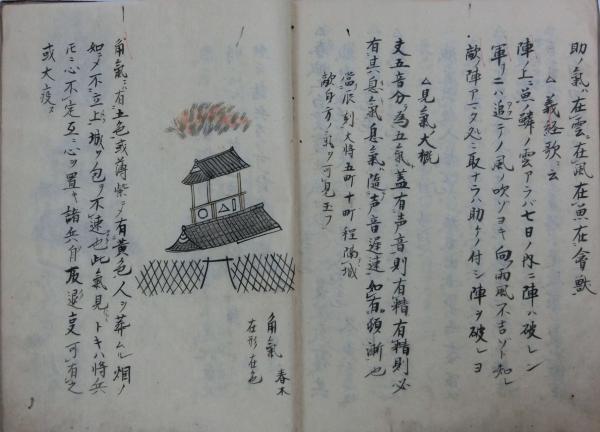 助ノ氣在雲在風在魚在會獸
△義経歌ニ云
陣ノ上ニ魚ノ鱗ノ雲アラバ七日ノ内ニ陣ハ破レン
軍リニハ追テノ風ノ吹ゾヨキ向雨風不吉ソト知レ
敵ノ陣アマタ処ニ取ナラハ助ケノ付シ陣ヲ破レヨ
△見氣大概
文五音分為五氣蓋有声音則有精有精則必
有其息氣息氣隨声音遅速如有頓漸也
當辰刻大將五町十町程隔城
敵身方ノ氣ヲ可見玉フ
角氣 春木
在形在色
角氣ニ有土色或薄紫ニノ有黄色人ヲ葬ムル烟ノ
如ソメ不立上城ヲ包ヲ不速也此氣見トキハ將兵
心不定互ニ心ヲ置キ諸兵自反退支可有之
或大疫ス